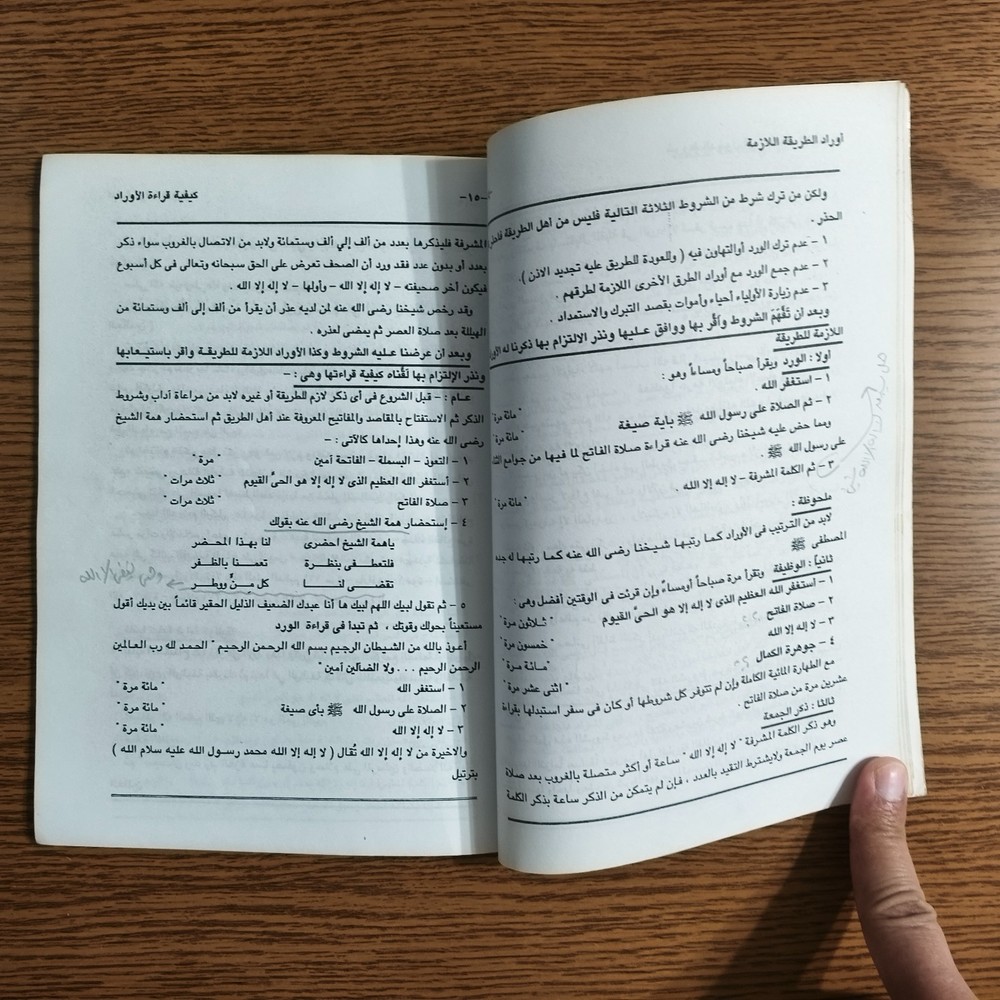 أوراد الطريقة اللازمة
ولكن من ترك شرط من الشروط الثلاثة التالية فليس من أهل الطريقة
الحذر .
١ – عدم ترك الورد أوالتهاون فيه ( وللعودة للطريق عليه تجديد الاذن ) .
٢ – عدم جمع الورد مع أوراد الطرق الأخرى اللازمة لطرقهم .
٣ – عدم زيارة الأولياء أحياء وأموات بقصد التبرك والاستمداد .
وبعد ان تَفَهَّمَ الشروط وأقُر بها ووافق عـليها ونذر الالتزام بها ذكرنا له
اللازمة للطريقة
أولا : الورد ويقرأ صباحاً ومساءاً وهو :
١ – استغفر الله . " مائة مرة "
٢ – ثم الصلاة على رسول الله ﷺ باية صيغة " مائة مرة "
ومما حض عليه شيخنا رضى الله عنه قراءة صلاة الفاتح لما فيها من جوامع
على رسول الله ﷺ .
٣ – ثم الكلمة المشرفة – لا إله إلا الله . " مائة مرة "
ملحوظة :
لابد من الترتيب فى الأوراد كما رتبها شيخنا رضى الله عنه كما رتبها له جده
المصطفى ﷺ
ثانياً : الوظيفة وتقرأ مرة صباحاً أومساءً وإن قرئت فى الوقتين أفضل وهى :
١ – استغفر الله العظيم الذى لا إله إلا هو الحىُّ القيوم " ثـلاثون مرة "
٢ – صلاة الفاتح " خمسون مرة "
٣ – لا إله إلا الله " مـائة مـرة "
٤ – جوهرة الكمال " اثنى عشر مرة "
مع الطهارة المائية الكاملة وإن لم تتوفر كل شروطها أو كان فى سفر استبدلها بقراءة
عشرين مرة من صلاة الفاتح .
ثالثا : ذكر الجمعة
وهو ذكر الكلمة المشرفة " لا إله إلا الله " ساعة أو أكثر متصلة بالغروب بعد صلاة
عصر يوم الجمعة ولايشترط التقيد بالعدد ، فإن لم يتمكن من الذكر ساعة بذكر الكلمة
–١٥– كيفية قراءة الأوراد
المشرفة فليذكرها بعدد من ألف إلي ألف وستمائة ولابد من الاتصال بالغروب سواء ذكر
بعدد أو بدون عدد فقد ورد أن الصحف تعرض على الحق سبحانه وتعالى فى كل أسبوع
فيكون أخر صحيفته – لا إله إلا الله – وأولها – لا إله إلا الله .
وقد رخص شيخنا رضى الله عنه لمن لديه عذر أن يقرأ من ألف إلى ألف وستمائة من
الهيللة بعد صلاة العصر ثم يمضى لعذره .
وبعد ان عرضنا عليه الشروط وكذا الأوراد اللازمة للطريقـة وأقر باستيـعابها
ونذر الإلتزام بها لَقَّناه كيفية قراءتها وهى : –
عـام : – قبل الشروع فى أى ذكر لازم للطريقة أو غيره لابد من مراعاة آداب وشروط
الذكر ثم الاستفتاح بالمقاصد والمفاتيح المعروفة عند أهل الطريق ثم استحضار همة الشيخ
رضى الله عنه وهذا إحداها كالآتى : –
١ – التعوذ – البسملة – الفاتحة آمين " مرة "
٢ – أستغفر الله العظيم الذى لا إله إلا هو الحىُّ القيوم " ثلاث مرات "
٣ – صلاة الفاتح " ثلاث مرات "
٤ – إستحضار همة الشيخ رضى الله عنه بقولك
ياهمة الشيخ احضرى لنا بهـذا المحـضر
فلتعطـفى بنظـرة تعمـنا بالظـفر
تقضـى لنـــا كل مِـنٍّ ووطـر
٥ – ثم تقول لبيك اللهم لبيك ها أنا عبدك الضعيف الذليل الحقير قائماً بين يديك أقول
مستعيناً بحولك وقوتك ، ثم تبدأ فى قراءة الورد
أعـوذ بالله من الشـيطان الرجيم بسم الله الرحمن الرحيم " الحمـد لله رب العـالمين
الرحمن الرحيم . . . ولا الضآلين آمين "
١ – استغفر الله " مائة مرة "
٢ – الصلاة على رسول الله ﷺ بأى صيغة " مائة مرة "
٣ – لا إله إلا الله " مائة مرة "
والاخيرة من لا إله إلا الله تُقال ( لا إله إلا الله محمد رسـول الله عليه سلام الله )
بترتيل